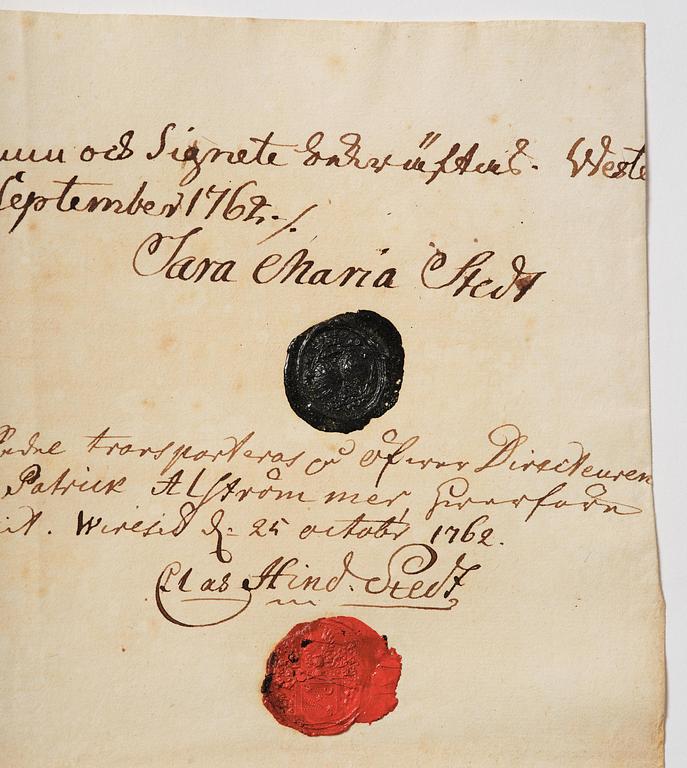 och Signete bekräftas. Weste
September 1762./.
Sara Maria Stedt
transporteras på Öfwer Directeuren
Patrick Alström mer
d. 25 octobr 1762.
Clas Hind. Stedt